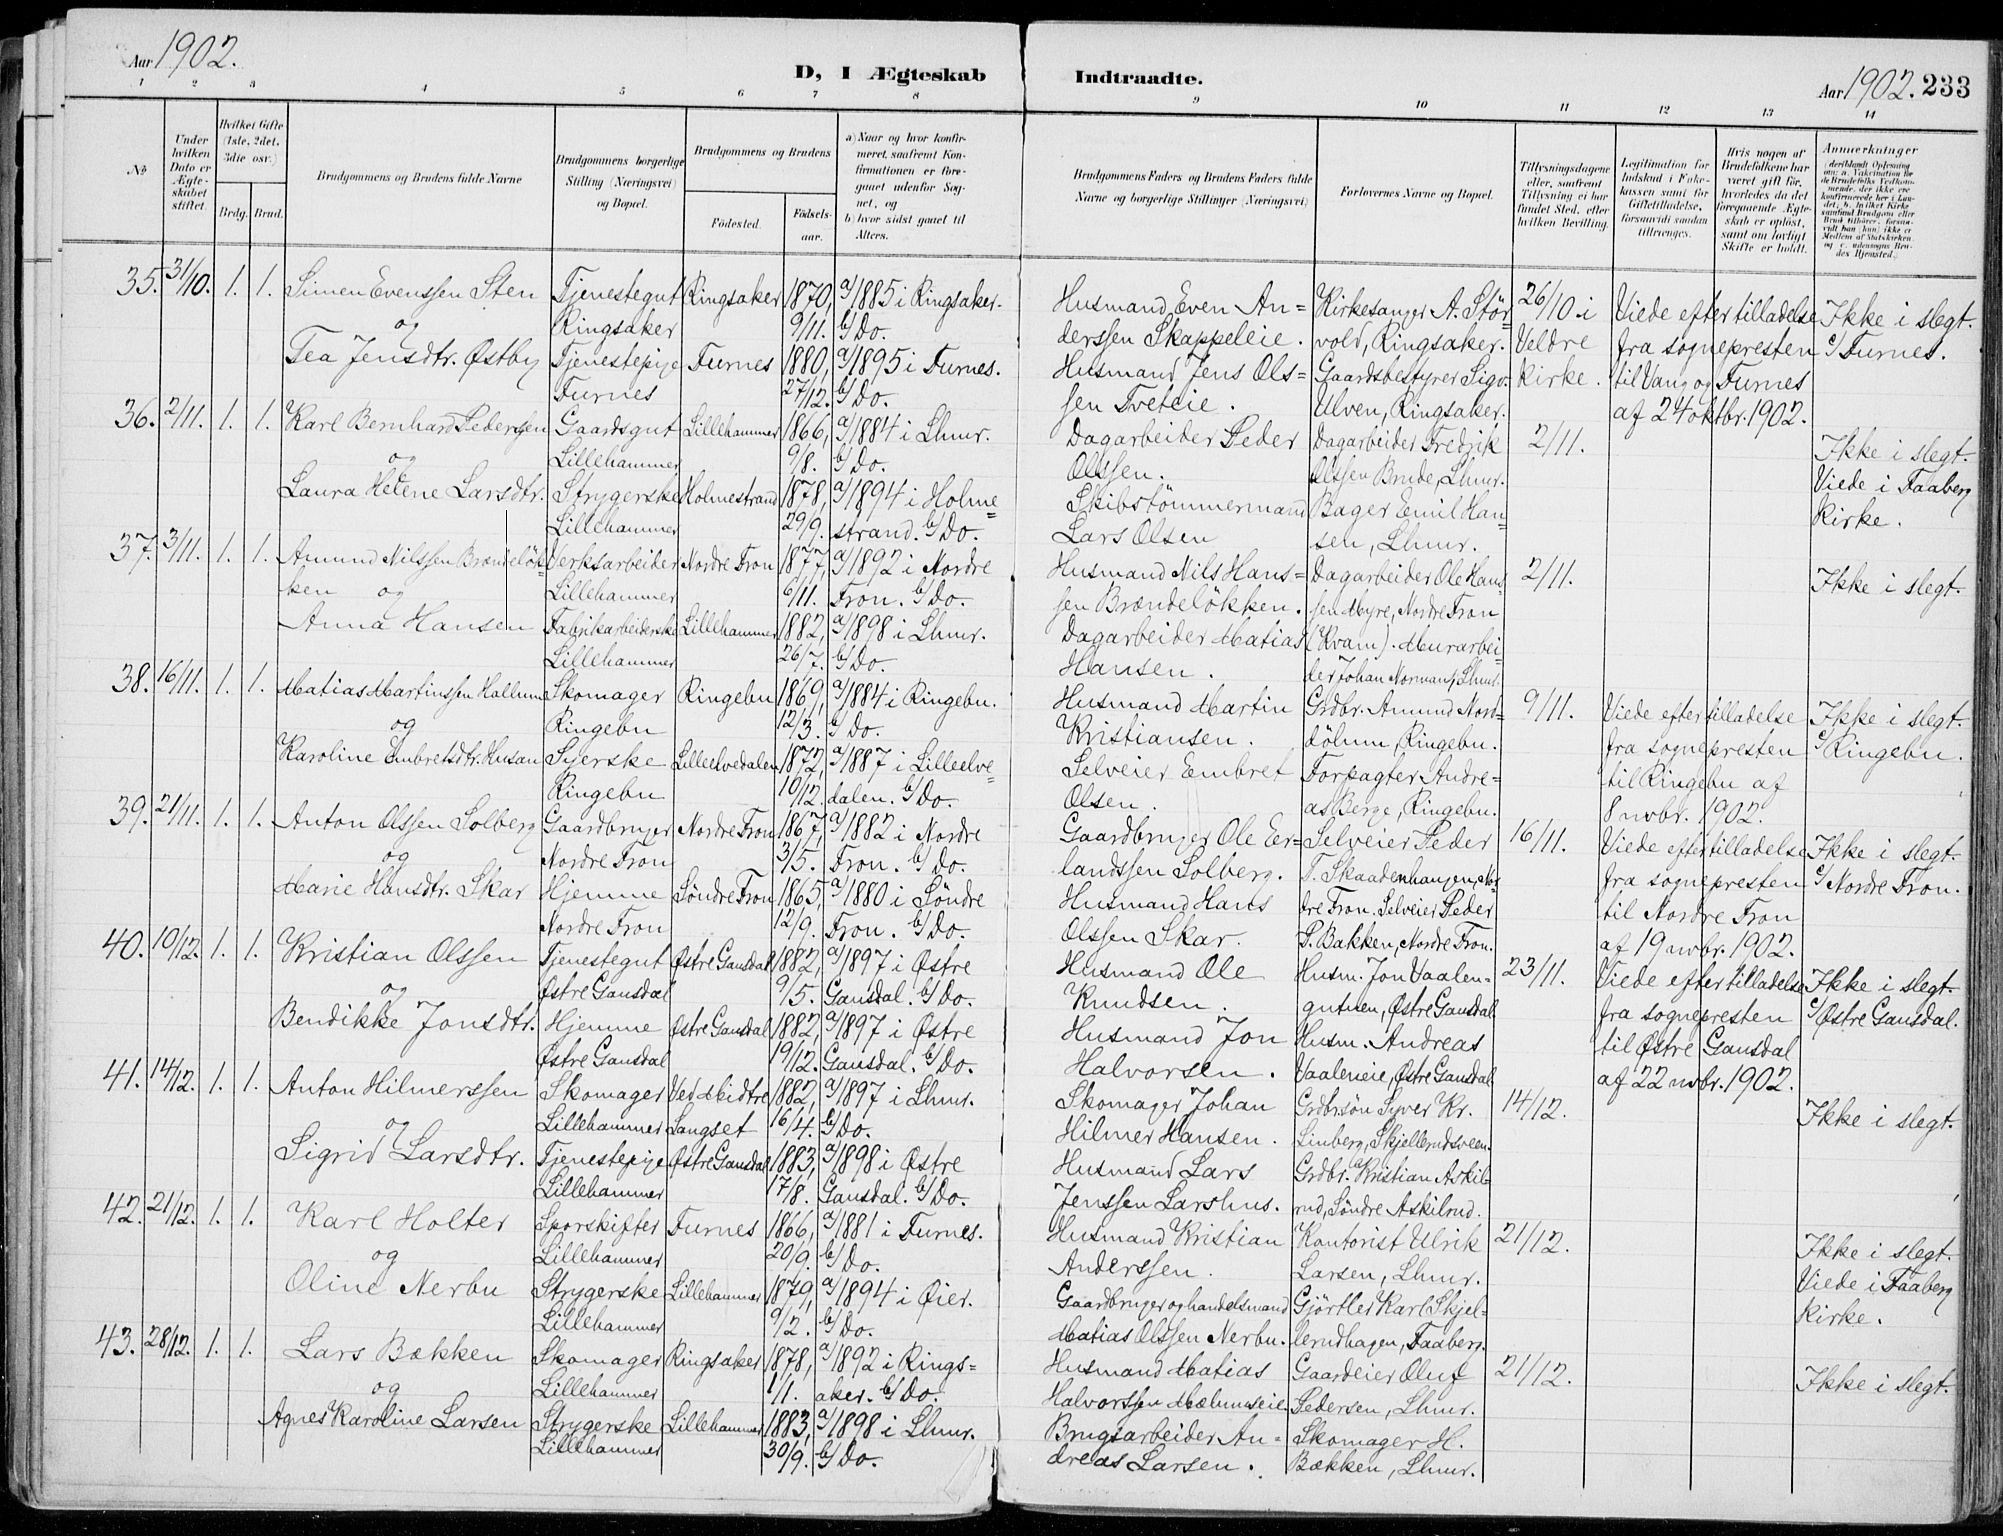 Aar 1902.
D, I Ægteskab Indtraadte.
Aar 1902. 233
1 2 3 4 5 6 7 8 9 10 11 12 13 14
No
Under hvilken Dato er Ægteskabet stiftet.
Hvilket Gifte (1ste, 2det, 3die osv.)
Brdg. Brud.
Brudgommens og Brudens fulde Navne
Brudgommens borgerlige Stilling (Næringsvei) og Bopæl.
Brudgommens og Brudens
Fødested. Fødselsaar.
a) Naar og hvor konfirmeret, saafremt Konfirmationen er foregaaet udenfor Sognet, og
b) hvor sidst gaaet til Alters.
Brudgommens Faders og Brudens Faders fulde Navne og borgerlige Stillinger (Næringsvei)
Forlovernes Navne og Bopæl.
Tillysningsdagene eller, saafremt Tillysning ei har fundet Sted, efter hvilken Bevilling.
Legitimation for Indskud i Enkekassen samt for Giftetilladelse, forsaavidt saadan tiltrænges.
Hvis nogen af Brudefolkene har været gift før, hvorledes da det foregaaende Ægteskab er opløst, samt om lovligt Skifte er holdt.
Anmerkninger
35. 31/10. 1. 1. Simen Evenssen Sten Tjenestegut Ringsaker 1870, a/1885 i Ringsaker. Husmand Even An= Kirkesanger A. Stör 26/10 i Viede efter tilladelse Ikke i slegt.
og Ringsaker 9/11. b/Do. derssen Skappeleie. vold, Ringsaker. Veldre fra sognepresten c/Furnes.
Tea Jensdtr. Østby Tjenestepige Furnes 1880, a/1895 i Furnes. Husmand Jens Ols= Gaardsbestyrer Sigv. kirke. til Vang og Furnes
Furnes 27/12. b/Do. sen Tveteie. Ulven, Ringsaker. af 24 oktbr. 1902.
36. 2/11. 1. 1. Karl Bernhard Pederssen Gaardsgut Lillehammer 1866, a/1884 i Lhmr. Dagarbeider Peder Dagarbeider Fredrik 2/11. Ikke i slegt.
og Lillehammer 9/8. b/Do. Olssen. Olssen Brude, Lhmr. Viede i Faaberg
Laura Helene Larsdtr. Strygerske Holmestrand 1878, a/1894 i Holme= Skibstömmermand Bager Emil Han= kirke.
Lillehammer 29/9. strand. b/Do. Lars Olsen sen, Lhmr.
37. 3/11. 1. 1. Amund Nilssen Brændelök= Verksarbeider Nordre Fron 1877, a/1892 i Nordre Husmand Nils Hans= Dagarbeider Ole Hans 2/11. Ikke i slegt.
ken og Lillehammer 6/11. Fron. b/Do. sen Brændelökken. sen Myre, Nordre Fron
Anna Hansen Fabrikarbeiderske Lillehammer 1882, a/1898 i Lhmr. Dagarbeider Matias (Kvam). Murarbei=
Lillehammer 26/7. b/Do. Hansen. der Johan Norman, Lhmr.
38. 16/11. 1. 1. Matias Martinssen Hallum Skomager Ringebu 1869, a/1884 i Ringebu. Husmand Martin Grdbr. Amund Nord= 9/11. Viede efter tilladelse Ikke i slegt.
og Ringebu 12/3. b/Do. Kristiansen. dölum, Ringebu. fra sognepresten c/Ringebu.
Karoline Embretsdtr. Husan Syerske Lilleelvedalen 1872, a/1887 i Lilleelve= Selveier Embret Forpagter Andre= til Ringebu af
Ringebu 10/12. dalen. b/Do. Olsen. as Berge, Ringebu. 8 nvbr. 1902.
39. 21/11. 1. 1. Anton Olssen Solberg Gaardbruger Nordre Fron 1867, a/1882 i Nordre Gaardbruger Ole Er= Selveier Peder 16/11. Viede efter tilladelse Ikke i slegt.
og Nordre Fron 3/5. Fron. b/Do. landssen Solberg. T. Skaadenhaugen, Nor= fra sognepresten c/Nordre Fron.
Marie Hansdtr. Skar Hjemme Søndre Fron 1865, a/1880 i Søndre Husmand Hans dre Fron. Selveier Peder til Nordre Fron
Nordre Fron 12/9. Fron. b/Do. Olssen Skar. P. Bakken, Nordre Fron. af 19 nvbr. 1902.
40. 10/12. 1. 1. Kristian Olssen Tjenestegut Østre Gausdal 1882, a/1897 i Østre Husmand Ole Husm. Jon Vaalen= 23/11. Viede efter tilladelse Ikke i slegt.
og Østre Gausdal 9/5. Gausdal. b/Do. Knudsen. gutuen, Østre Gausdal fra sognepresten c/Østre Gausdal.
Bendikke Jonsdtr. Hjemme Østre Gausdal 1882, a/1897 i Østre Husmand Jon Husm. Andreas til Østre Gausdal
Østre Gausdal 19/12. Gausdal. b/Do. Halvorsen. Vaaleneie, Østre Gausdal af 22 nvbr. 1902.
41. 14/12. 1. 1. Anton Hilmerssen Skomager Ved Midtre 1882, a/1897 i Lhmr. Skomager Johan Grdbrsön Syver Kr. 14/12. Ikke i slegt.
og Lillehammer Langset 16/4. b/Do. Hilmer Hansen. Linberg, Skjellerudsveen.
Sigrid Larsdtr. Tjenestepige Østre Gausdal 1883, a/1898 i Østre Husmand Lars Grdbr. Kristian Askil=
Lillehammer 17/8. Gausdal. b/Do. Jenssen Larshus. rud, Söndre Askilrud.
42. 21/12. 1. 1. Karl Holter Sporskifter Furnes 1866, a/1881 i Furnes. Husmand Kristian Kontorist Ulrik 21/12. Ikke i slegt.
og Lillehammer 20/9. b/Do. Anderssen. Larsen, Lhmr. Viede i Faaberg
Oline Nerbu Strygerske Lillehammer 1879, a/1894 i Øier. Gaardbruger og handelsmand Gjörtler Karl Skjel= kirke.
Lillehammer 9/2. b/Do. Matias Olssen Nerbu. lerudhagen, Faaberg.
43. 28/12. 1. 1. Lars Bækken Skomager Ringsaker 1878, a/1892 i Rings= Husmand Matias Gaardeier Oluf 21/12. Ikke i slegt.
og Lillehammer 1/1. aker. b/Do. Halvorssen Mælumseie Pedersen, Lhmr.
Agnes Karoline Larsen Strygerske Lillehammer 1883, a/1898 i Lhmr. Brugsarbeider An= Skomager H.
Lillehammer 30/9. b/Do. dreas Larsen. Bækken, Lhmr.